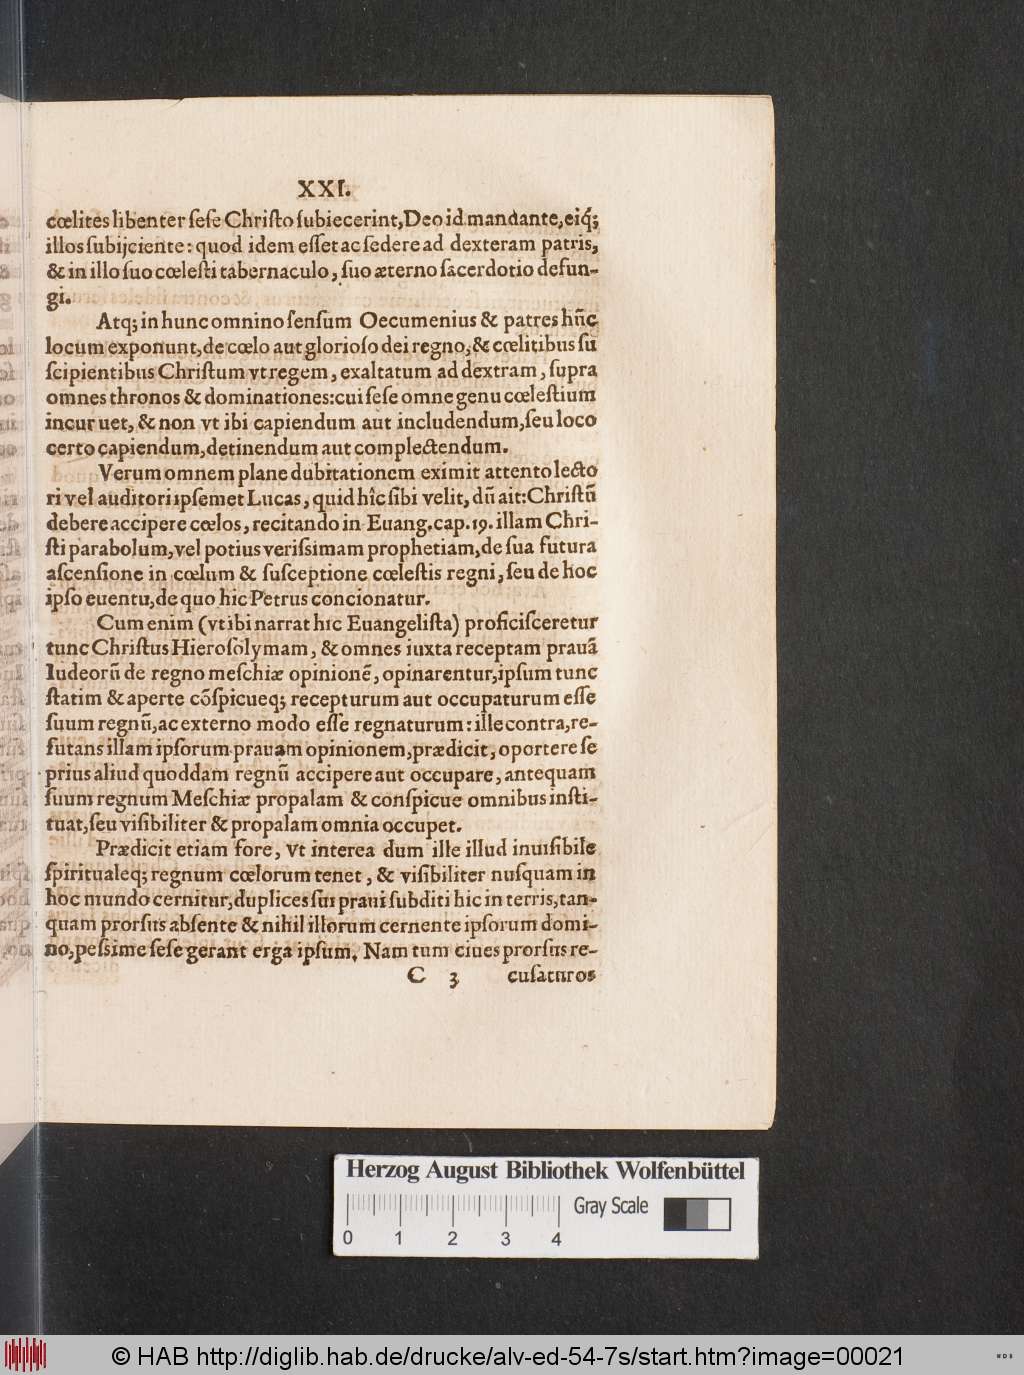 XXI.
cœlites libenter ſeſe Chriſto ſubiecerint, Deo id mandante, eiq́;
illos ſubijciente: quod idem eſſet ac ſedere ad dexteram patris,
& in illo ſuo cœleſti tabernaculo, ſuo æterno ſacerdotio defun-
gi.
Atq; in hunc omnino ſenſum Oecumenius & patres hūc
locum exponunt, de cœlo aut glorioſo dei regno, & cœlitibus ſu
ſcipientibus Chriſtum vt regem, exaltatum ad dextram, ſupra
omnes thronos & dominationes: cui ſeſe omne genu cœleſtium
incur uet, & non vt ibi capiendum aut includendum, ſeu loco
certo capiendum, detinendum aut complectendum.
Verum omnem plane dubitationem eximit attento lecto
ri vel auditori ipſemet Lucas, quid hîc ſibi velit, dū ait: Chriſtū
debere accipere cœlos, recitando in Euang. cap. 19. illam Chri-
ſti parabolum, vel potius veriſsimam prophetiam, de ſua futura
aſcenſione in cœlum & ſuſceptione cœleſtis regni, ſeu de hoc
ipſo euentu, de quo hic Petrus concionatur.
Cum enim (vt ibi narrat hic Euangeliſta) proficiſceretur
tunc Chriſtus Hieroſolymam, & omnes iuxta receptam prauā
Iudeorū de regno meſchiæ opinionē, opinarentur, ipſum tunc
ſtatim & aperte cōſpicueq; recepturum aut occupaturum eſſe
ſuum regnū, ac externo modo eſſe regnaturum: ille contra, re-
futans illam ipſorum prauam opinionem, prædicit, oportere ſe
prius aliud quoddam regnū accipere aut occupare, antequam
ſuum regnum Meſchiæ propalam & conſpicue omnibus inſti-
tuat, ſeu viſibiliter & propalam omnia occupet.
Prædicit etiam fore, vt interea dum ille illud inuiſibile
ſpiritualeq; regnum cœlorum tenet, & viſibiliter nuſquam in
hoc mundo cernitur, duplices ſui praui ſubditi hic in terris, tan-
quam prorſus abſente & nihil illorum cernente ipſorum domi-
no, peſsime ſeſe gerant erga ipſum. Nam tum ciues prorſus re-
C 3 cuſaturos
Herzog August Bibliothek Wolfenbüttel
Gray Scale
0 1 2 3 4
© HAB http://diglib.hab.de/drucke/alv-ed-54-7s/start.htm?image=00021
WDB